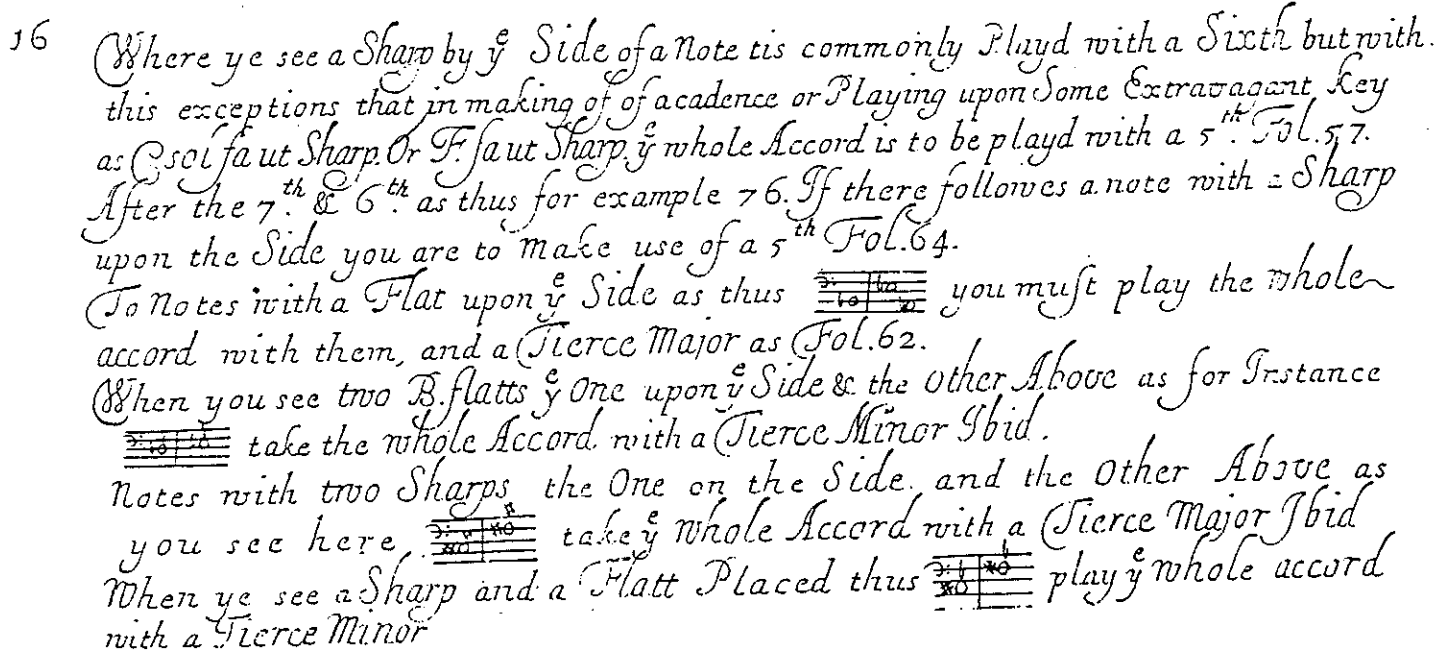 16 Where ye see a Sharp by yᵉ Side of a Note tis commonly Playd with a Sixth but with.
this exceptions that in making of of a cadence or Playing upon Some Extravagant Key
as C sol fa ut Sharp. Or F. faut Sharp. yᵉ whole Accord is to be playd with a 5ᵗʰ. Fol. 57.
After the 7ᵗʰ. & 6ᵗʰ. as thus for example 76. If there followes a note with a Sharp
upon the Side you are to make use of a 5ᵗʰ Fol. 64.
To Notes with a Flat upon yᵉ Side as thus you must play the whole
accord with them, and a Tierce Major as Fol. 62.
When you see two B. flatts yᵉ One upon yᵉ Side & the Other Above as for Instance
take the whole Accord. with a Tierce Minor Ibid.
Notes with two Sharps the One on the Side. and the Other Above as
you see here, take yᵉ whole Accord with a Tierce Major Ibid
When ye see a Sharp and a Flatt Placed thus play yᵉ whole accord
with a Tierce Minor